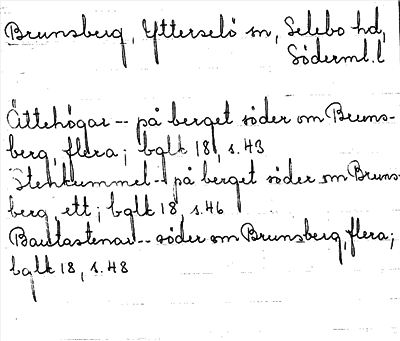 Brunsberg, Ytterselö sn, Selebo hd,
Söderml. l
Ättehögar -- på berget söder om Bruns-
berg, flera; bglk 18, s. 43
Stenkummel -- på berget söder om Bruns-
berg, ett; bglk 18, s. 46
Bautastenar -- söder om Brunsberg, flera;
bglk 18, s. 48